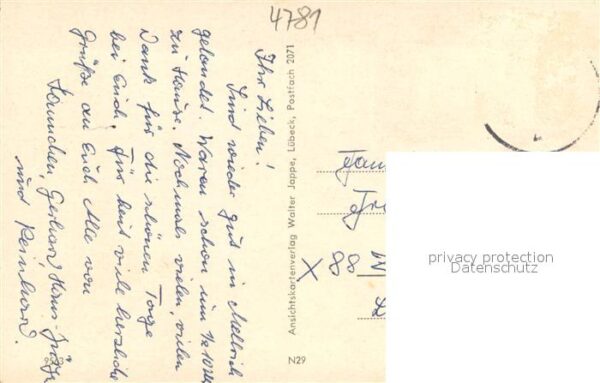 4781
Ihr Lieben!
Sind wieder gut in
gelandet. Waren schon um 1/2 10 Uhr
zu Hause. Nochmals vielen, vielen
Dank für die schönen Tage
bei Euch. Für heut viele herzliche
Grüße an Euch Alle von
Hans-
und Reinhard.
Ansichtskartenverlag Walter Jappe, Lübeck, Postfach 2071
N29
Fam
X 88
privacy protection
Datenschutz